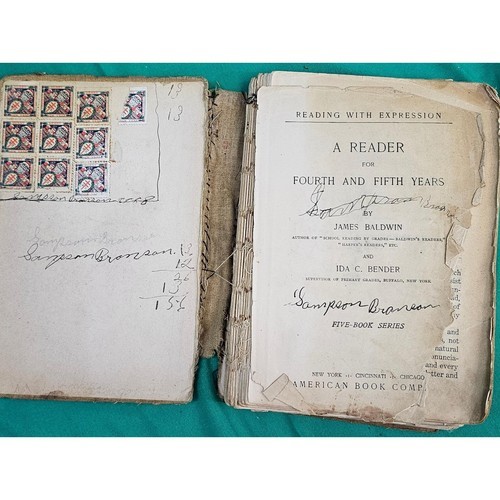 13
13
Sampson Branson
Sampson Branson 13
12
26
13
156
READING WITH EXPRESSION
A READER
FOR
FOURTH AND FIFTH YEARS
BY
JAMES BALDWIN
AUTHOR OF "SCHOOL READING BY GRADES—BALDWIN'S READERS,"
"HARPER'S READERS," ETC.
AND
IDA C. BENDER
SUPERVISOR OF PRIMARY GRADES, BUFFALO, NEW YORK.
Sampson Branson
FIVE-BOOK SERIES
and
not
natural
and every
NEW YORK CINCINNATI CHICAGO
AMERICAN BOOK COMP